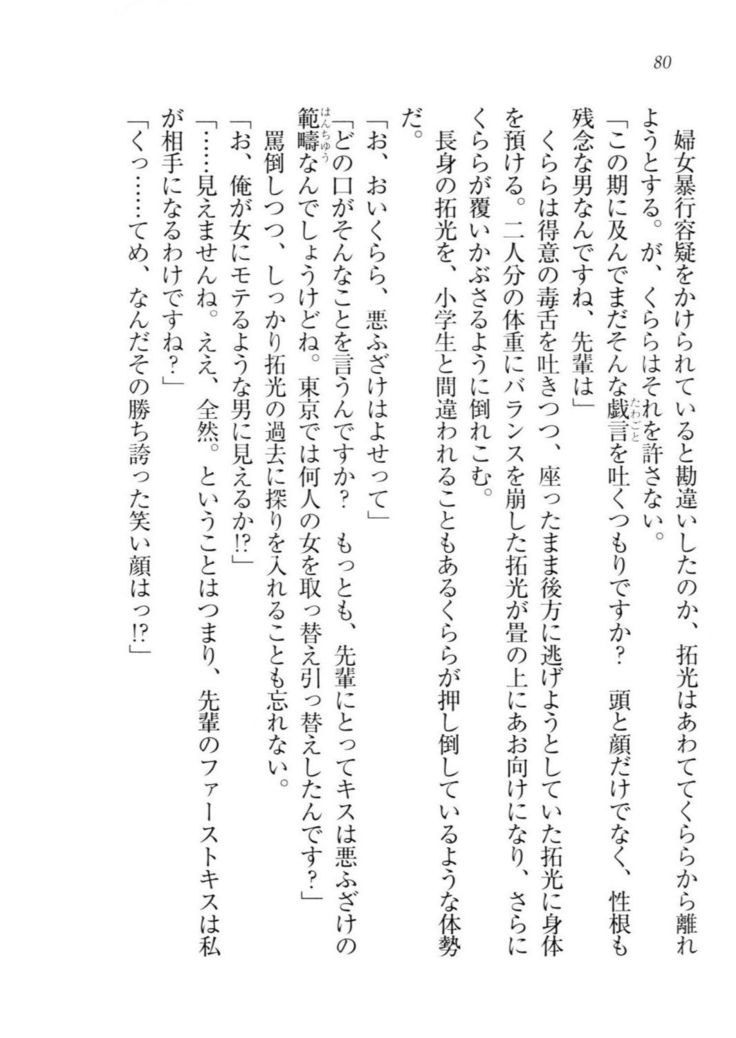 80
婦女暴行容疑をかけられていると勘違いしたのか、拓光はあわててくららから離れ
ようとする。が、くららはそれを許さない。
「この期に及んでまだそんな戯言を吐くつもりですか？　頭と顔だけでなく、性根も
たわごと
残念な男なんですね、先輩は」
くららは得意の毒舌を吐きつつ、座ったまま後方に逃げようとしていた拓光に身体
を預ける。二人分の体重にバランスを崩した拓光が畳の上にあお向けになり、さらに
くららが覆いかぶさるように倒れこむ。
長身の拓光を、小学生と間違われることもあるくららが押し倒しているような体勢
だ。
「お、おいくらら、悪ふざけはよせって」
「どの口がそんなことを言うんですか？　もっとも、先輩にとってキスは悪ふざけの
範疇なんでしょうけどね。東京では何人の女を取っ替え引っ替えしたんです？」
はんちゅう
罵倒しつつ、しっかり拓光の過去に探りを入れることも忘れない。
「お、俺が女にモテるような男に見えるか!?」
「……見えませんね。ええ、全然。ということはつまり、先輩のファーストキスは私
が相手になるわけですね？」
「くっ……てめ、なんだその勝ち誇った笑い顔はっ!?」